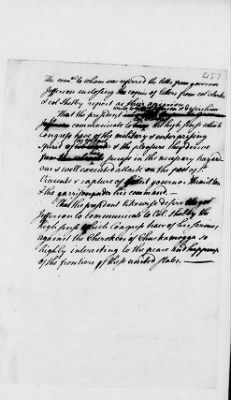 457
The comee to whom was referred the letter from governor
Jefferson enclosing the copies of letters from col. Clarke
& col Shelby report as their opinion
That the president
Jefferson communicate to the high sense which
Congress have of the military & enterprising
spirit of & the pleasure they derive
from in the necessary hazard
ous & well executed attack on the post of St.
Vincents & capture of governor Hamilton
& the garrison under his command
That the president likewise desire
Jefferson to communicate to Col. Shelby the
high sense which Congress have of his services
against the Cherokees of Chuckamogga so
highly interesting to the peace and happiness
of the frontiers of these united states.